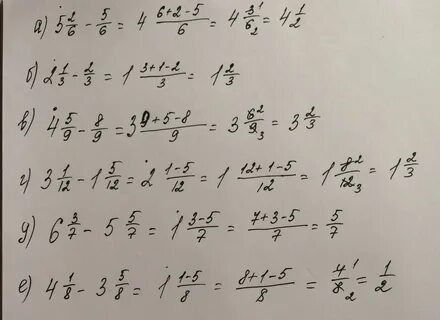 а) 5 2/6 - 5/6 = 4 (6+2-5)/6 = 4 3/6 1 2 = 4 1/2
б) 2 1/3 - 2/3 = 1 (3+1-2)/3 = 1 2/3
в) 4 5/9 - 8/9 = 3 (9+5-8)/9 = 3 6/9 2 3 = 3 2/3
г) 3 1/12 - 1 5/12 = 2 (1-5)/12 = 1 (12+1-5)/12 = 1 8/12 2 3 = 1 2/3
д) 6 3/7 - 5 5/7 = 1 (3-5)/7 = (7+3-5)/7 = 5/7
е) 4 1/8 - 3 5/8 = 1 (1-5)/8 = (8+1-5)/8 = 4/8 1 2 = 1/2